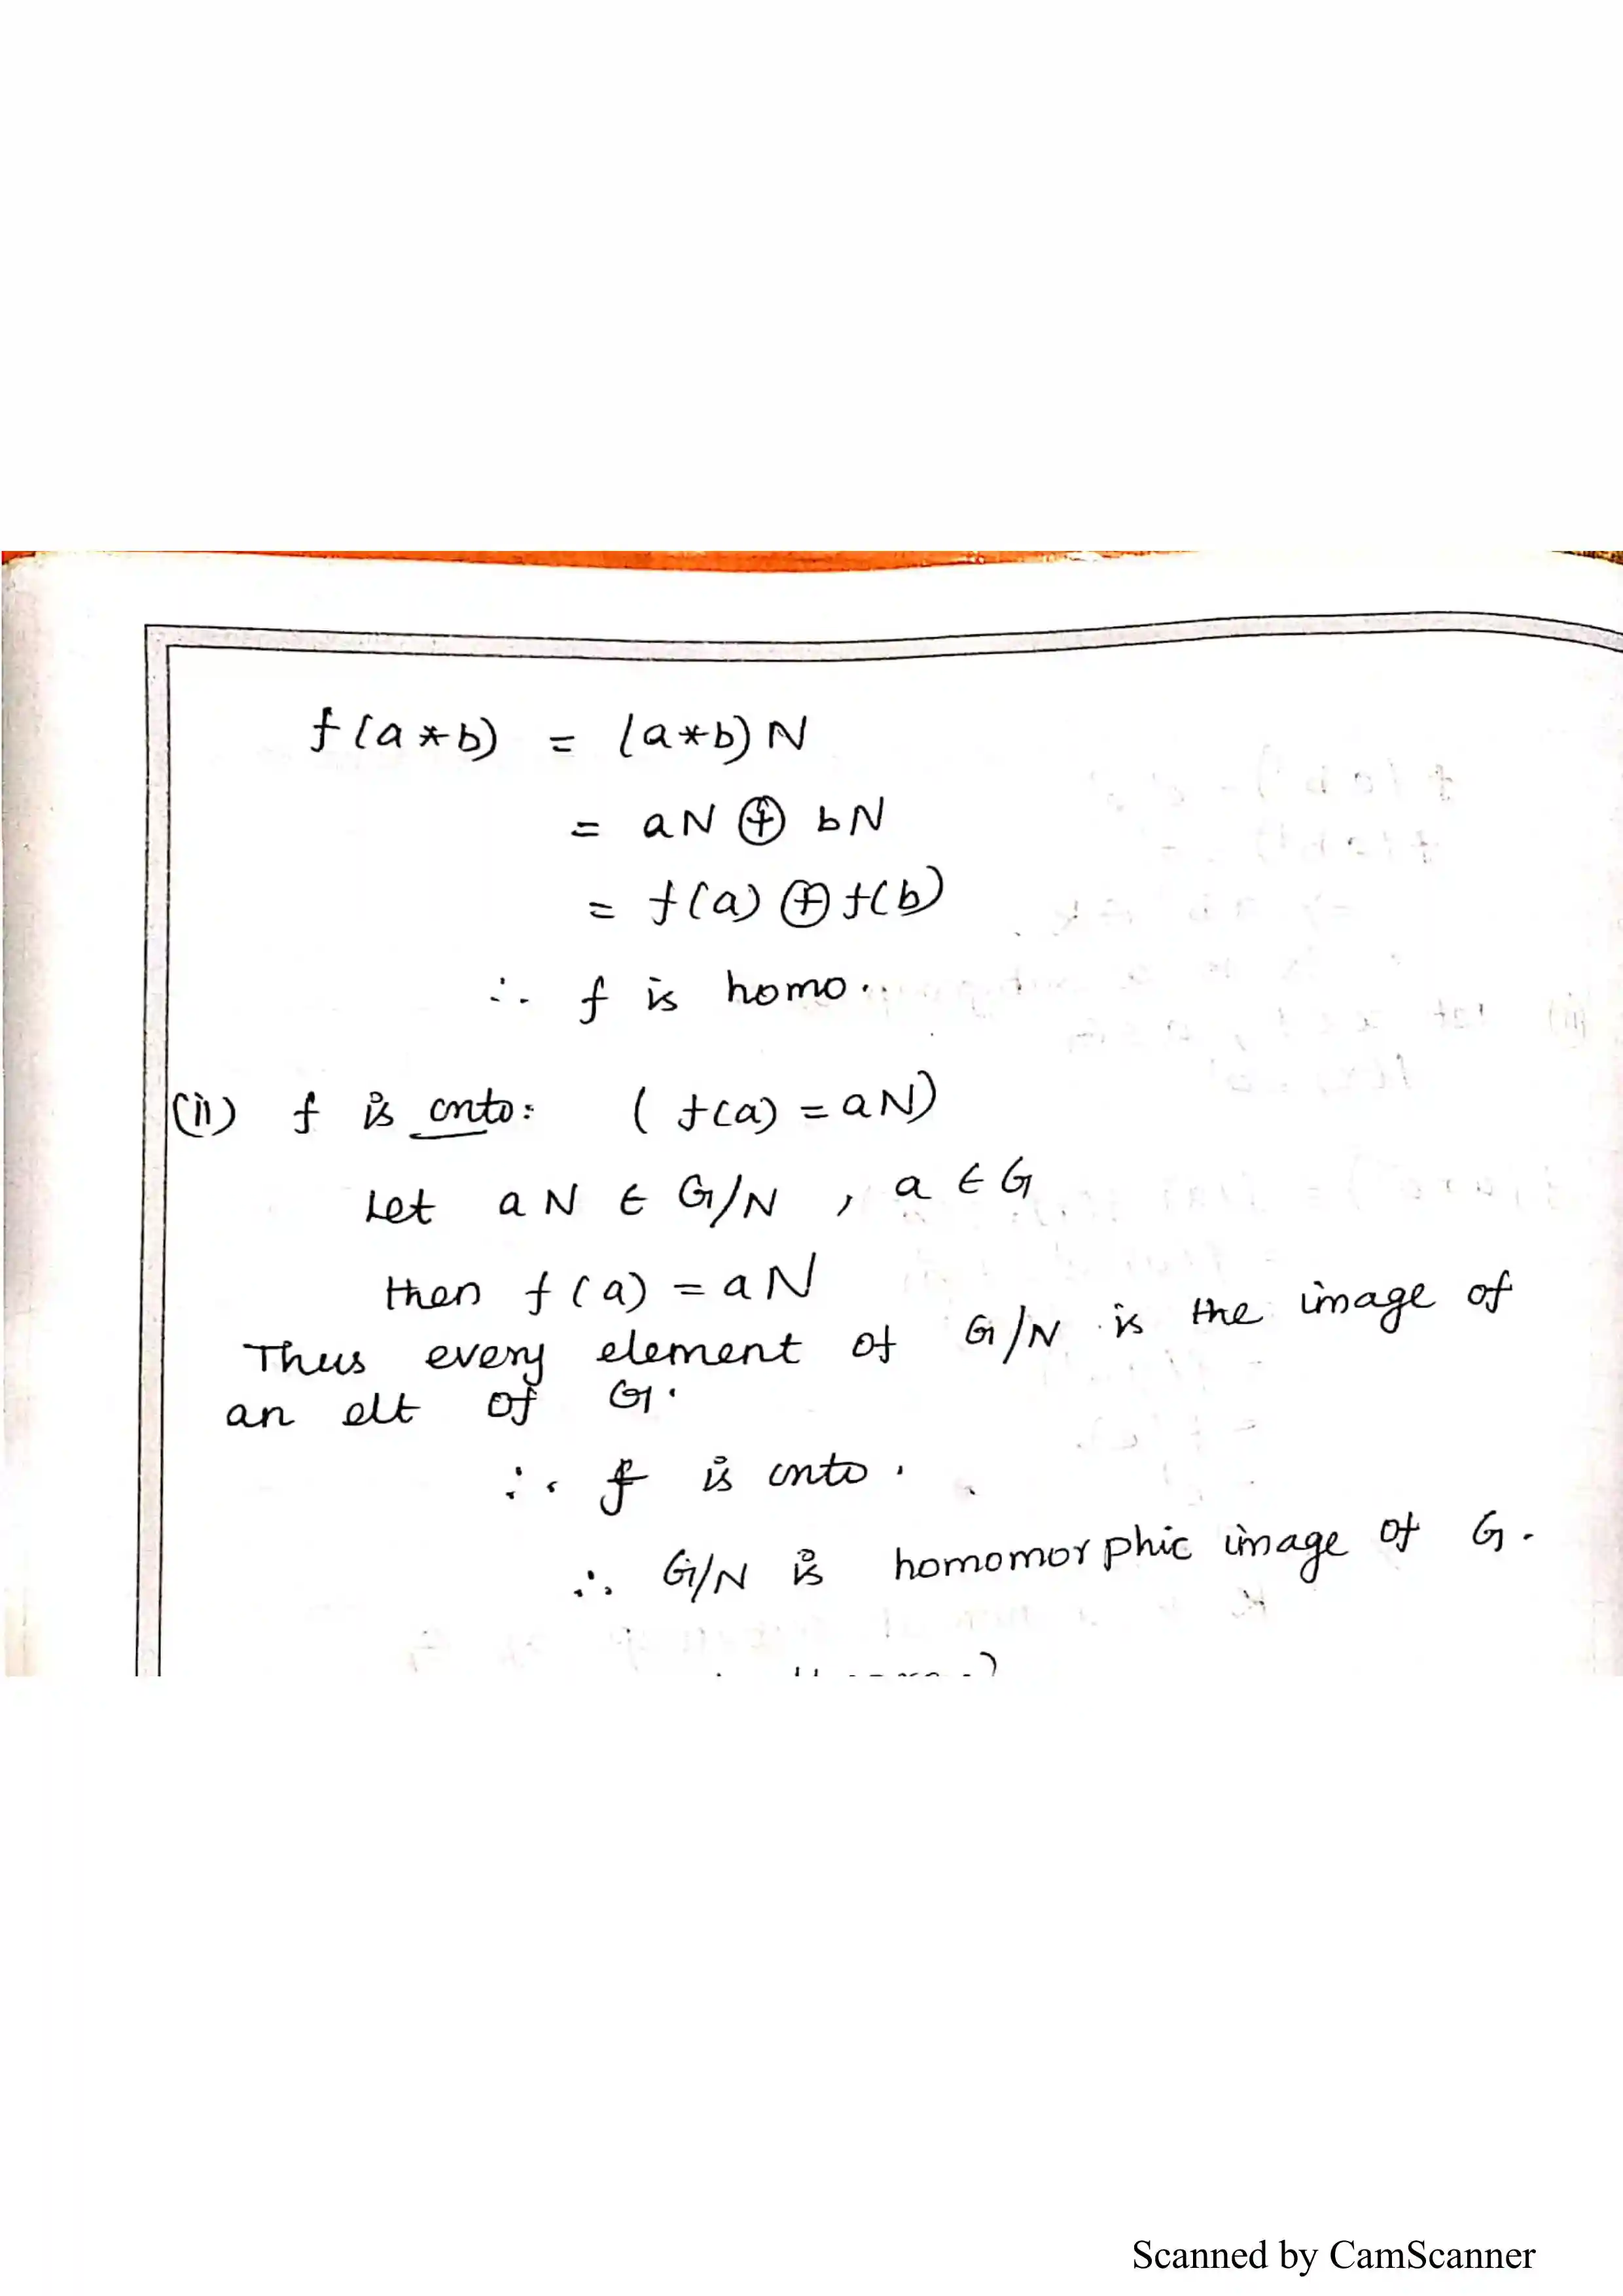 f(a*b) = (a*b)N
= aN ⊕ bN
= f(a) ⊕ f(b)
∴ f is homo.
(ii) f is onto: ( f(a) = aN)
Let aN ∈ G/N , a ∈ G
then f(a) = aN
Thus every element of G/N is the image of
an elt of G.
∴ f is onto.
∴ G/N is homomorphic image of G.
Scanned by CamScanner